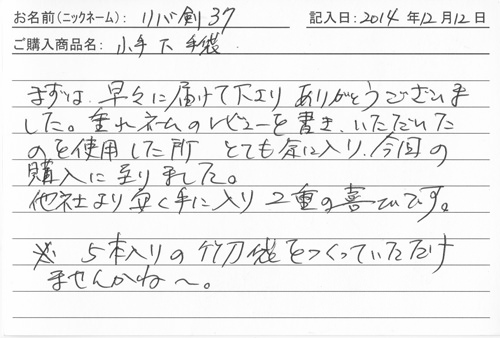 お名前(ニックネーム): リバ剣37 記入日: 2014年12月12日
ご購入商品名: 小手下手袋
まずは、早々に届けて下より ありがとうございま
した。垂れネームのレビューを書き、いただいた
のを使用した所 とても気に入り、今回の
購入に至りました。
他社より安く手に入り 2重の喜びです。
※ 5本入りの竹刀袋をつくっていただけ
ませんかね～。